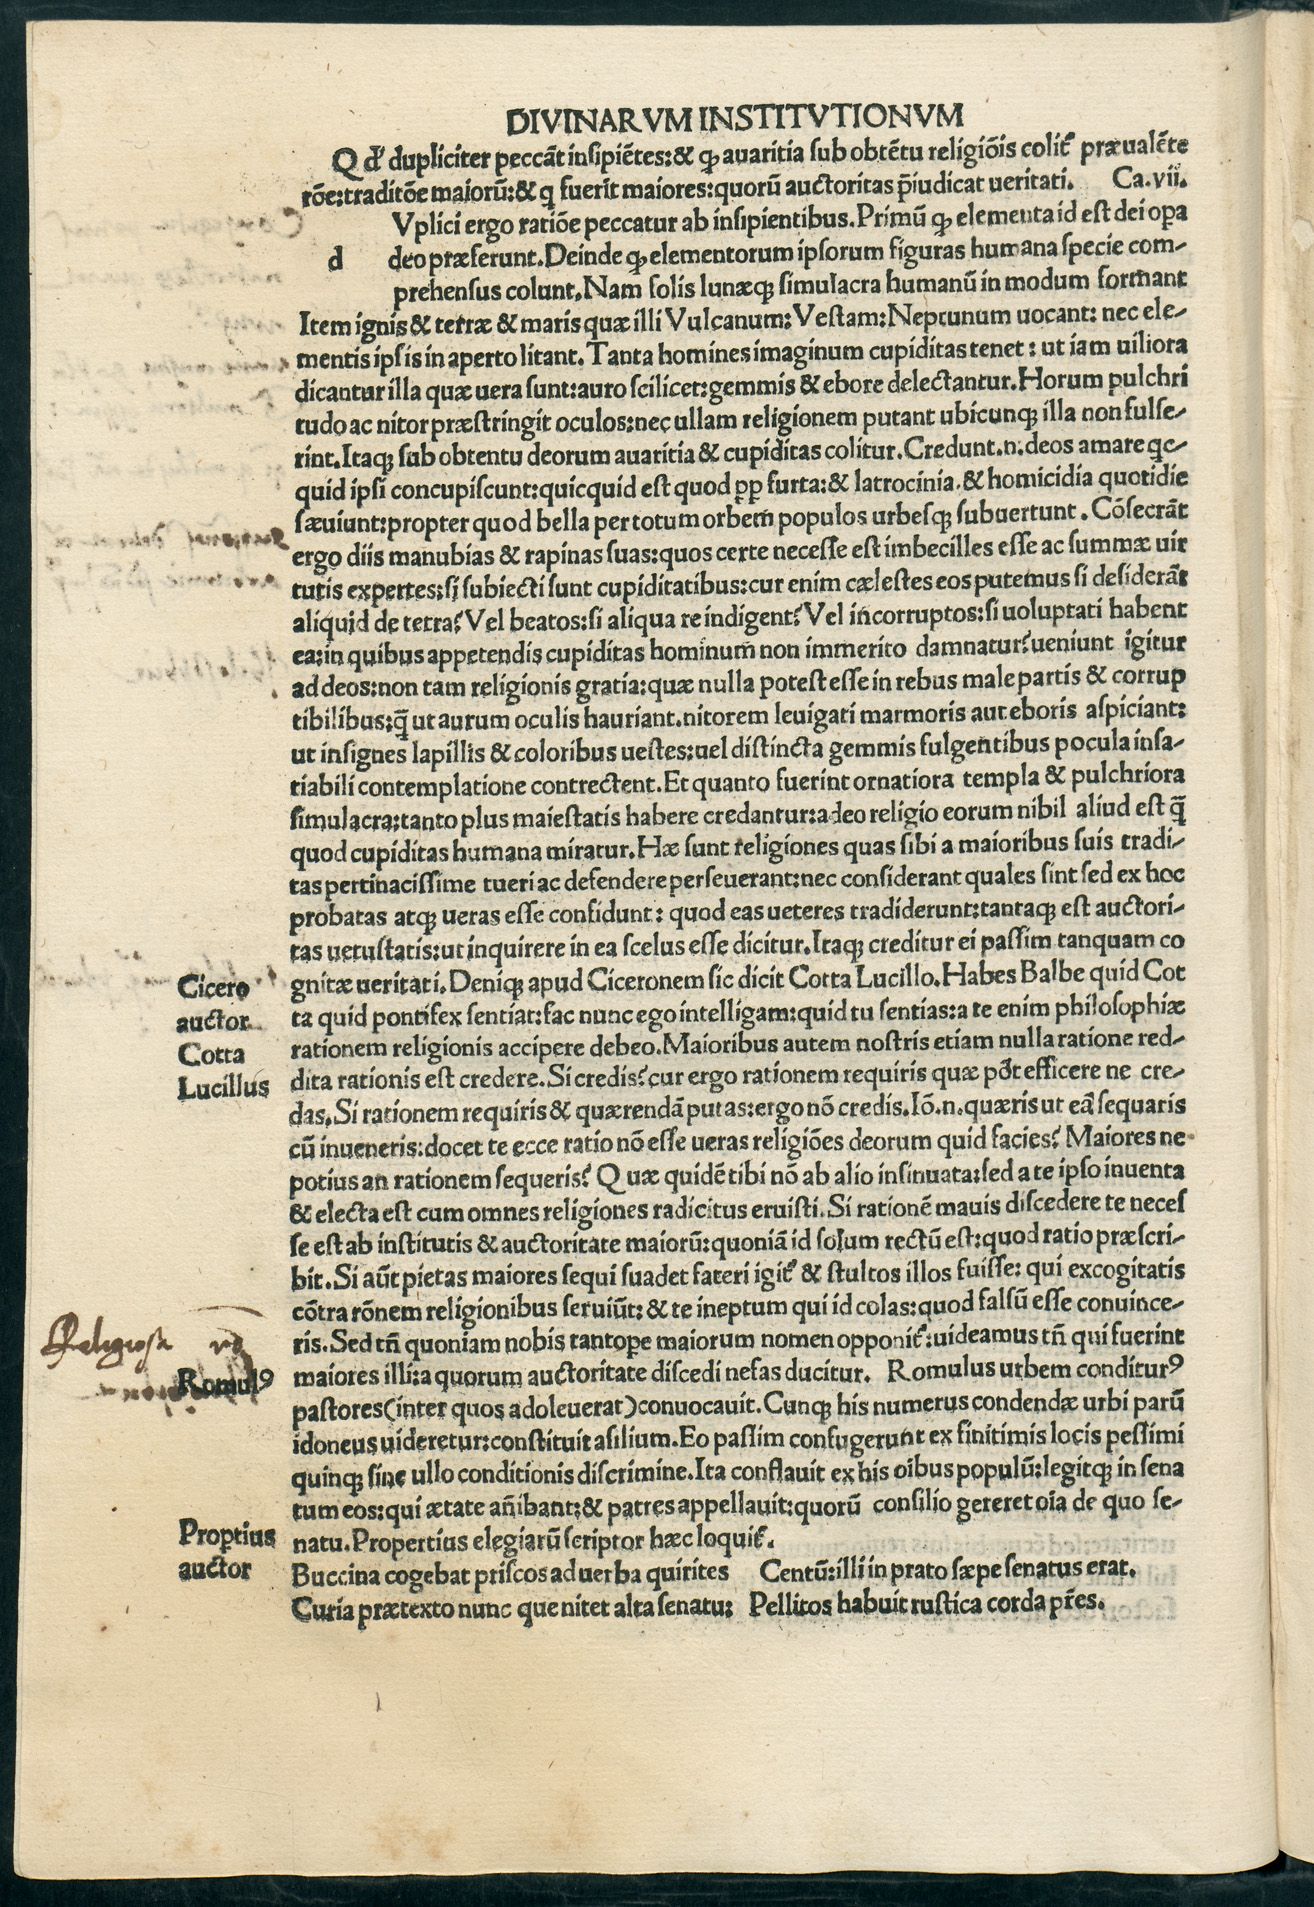 DIVINARVM INSTITVTIONVM
Q đ dupliciter peccāt insipiētes:& ꝙ auaritia sub obtētu religiōis colit᷑ præualēte
rōe:traditōe maiorū:& q fuerit maiores:quorū auctoritas p̄iudicat ueritati. Ca.vii.
Vplici ergo ratiōe peccatur ab insipientibus.Primū ꝙ elementa id est dei oꝑa
d deo præferunt.Deinde ꝙ elementorum ipsorum figuras humana specie com-
prehensus colunt.Nam solis lunæqꝫ simulacra humanū in modum formant
Item ignis & terræ & maris quæ illi Vulcanum:Vestam:Neptunum uocant: nec ele-
mentis ipsis in aperto litant.Tanta homines imaginum cupiditas tenet: ut iam uiliora
dicantur illa quæ uera sunt:auro scilicet:gemmis & ebore delectantur.Horum pulchri
tudo ac nitor præstringit oculos:nec ullam religionem putant ubicunqꝫ illa non fulse-
rint.Itaqꝫ sub obtentu deorum auaritia & cupiditas colitur.Credunt.n.deos amare qc-
quid ipsi concupiscunt:quicquid est quod ꝓꝑ furta:& latrocinia.& homicidia quotidie
sæuiunt:propter quod bella per totum orbem populos urbesqꝫ subuertunt.Cōsecrāt
ergo diis manubias & rapinas suas:quos certe necesse est imbecilles esse ac summæ uir
tutis expertes:si subiecti sunt cupiditatibus:cur enim cælestes eos putemus si desiderāt
aliquid de terra?Vel beatos:si aliqua re indigent?Vel incorruptos:si uoluptati habent
ea:in quibus appetendis cupiditas hominum non immerito damnatur?ueniunt igitur
ad deos:non tam religionis gratia:quæ nulla potest esse in rebus male partis & corrup
tibilibus:q̄ ut aurum oculis hauriant.nitorem leuigati marmoris aut eboris aspiciant:
ut insignes lapillis & coloribus uestes:uel distincta gemmis fulgentibus pocula insa-
tiabili contemplatione contrectent.Et quanto fuerint ornatiora templa & pulchriora
simulacra:tanto plus maiestatis habere credantur:adeo religio eorum nibil aliud est q̄
quod cupiditas humana miratur.Hæ sunt religiones quas sibi a maioribus suis tradi-
tas pertinacissime tueri ac defendere perseuerant:nec considerant quales sint sed ex hoc
probatas atqꝫ ueras esse confidunt: quod eas ueteres tradiderunt:tantaqꝫ est auctori-
tas uetustatis:ut inquirere in ea scelus esse dicitur.Itaqꝫ creditur ei passim tanquam co
gnitæ ueritati.Deniqꝫ apud Ciceronem sic dicit Cotta Lucillo.Habes Balbe quid Cot
ta quid pontifex sentiat:fac nunc ego intelligam:quid tu sentias:a te enim philosophiæ
rationem religionis accipere debeo.Maioribus autem nostris etiam nulla ratione red-
dita rationis est credere.Si credis?cur ergo rationem requiris quæ pōt efficere ne cre-
das.Si rationem requiris & quærendā putas:ergo nō credis.Iō.n.quæris ut eā sequaris
cū inueneris:docet te ecce ratio nō esse ueras religiōes deorum quid facies? Maiores ne
potius an rationem sequeris? Quæ quidē tibi nō ab alio insinuata:sed a te ipso inuenta
& electa est cum omnes religiones radicitus eruisti.Si rationē mauis discedere te neces
se est ab institutis & auctoritate maiorū:quoniā id solum rectū est:quod ratio præscri-
bit.Si aūt pietas maiores sequi suadet fateri igit᷑ & stultos illos fuisse: qui excogitatis
cōtra rōnem religionibus seruiūt: & te ineptum qui id colas:quod falsū esse conuince-
ris.Sed tn̄ quoniam nobis tantope maiorum nomen opponit᷑:uideamus tn̄ qui fuerint
maiores illi:a quorum auctoritate discedi nefas ducitur. Romulus urbem conditurꝰ
pastores(inter quos adoleuerat)conuocauit.Cunqꝫ his numerus condendæ urbi parū
idoneus uideretur:constituit asilium.Eo passim confugerunt ex finitimis locis pessimi
quinqꝫ sine ullo conditionis discrimine.Ita conflauit ex his oībus populū:legitqꝫ in sena
tum eos:qui ætate añibant:& patres appellauit:quorū consilio gereret oīa de quo se-
natu.Propertius elegiarū scriptor hæc loquit᷑.
Buccina cogebat priscos ad uerba quirites Centū:illi in prato sæpe senatus erat.
Curia prætexto nunc que nitet alta senatu: Pellitos habuit rustica corda pr̄es.
Cicero
auctor
Cotta
Lucillus
Religiosa
Romulꝰ
Proꝑtius
auctor